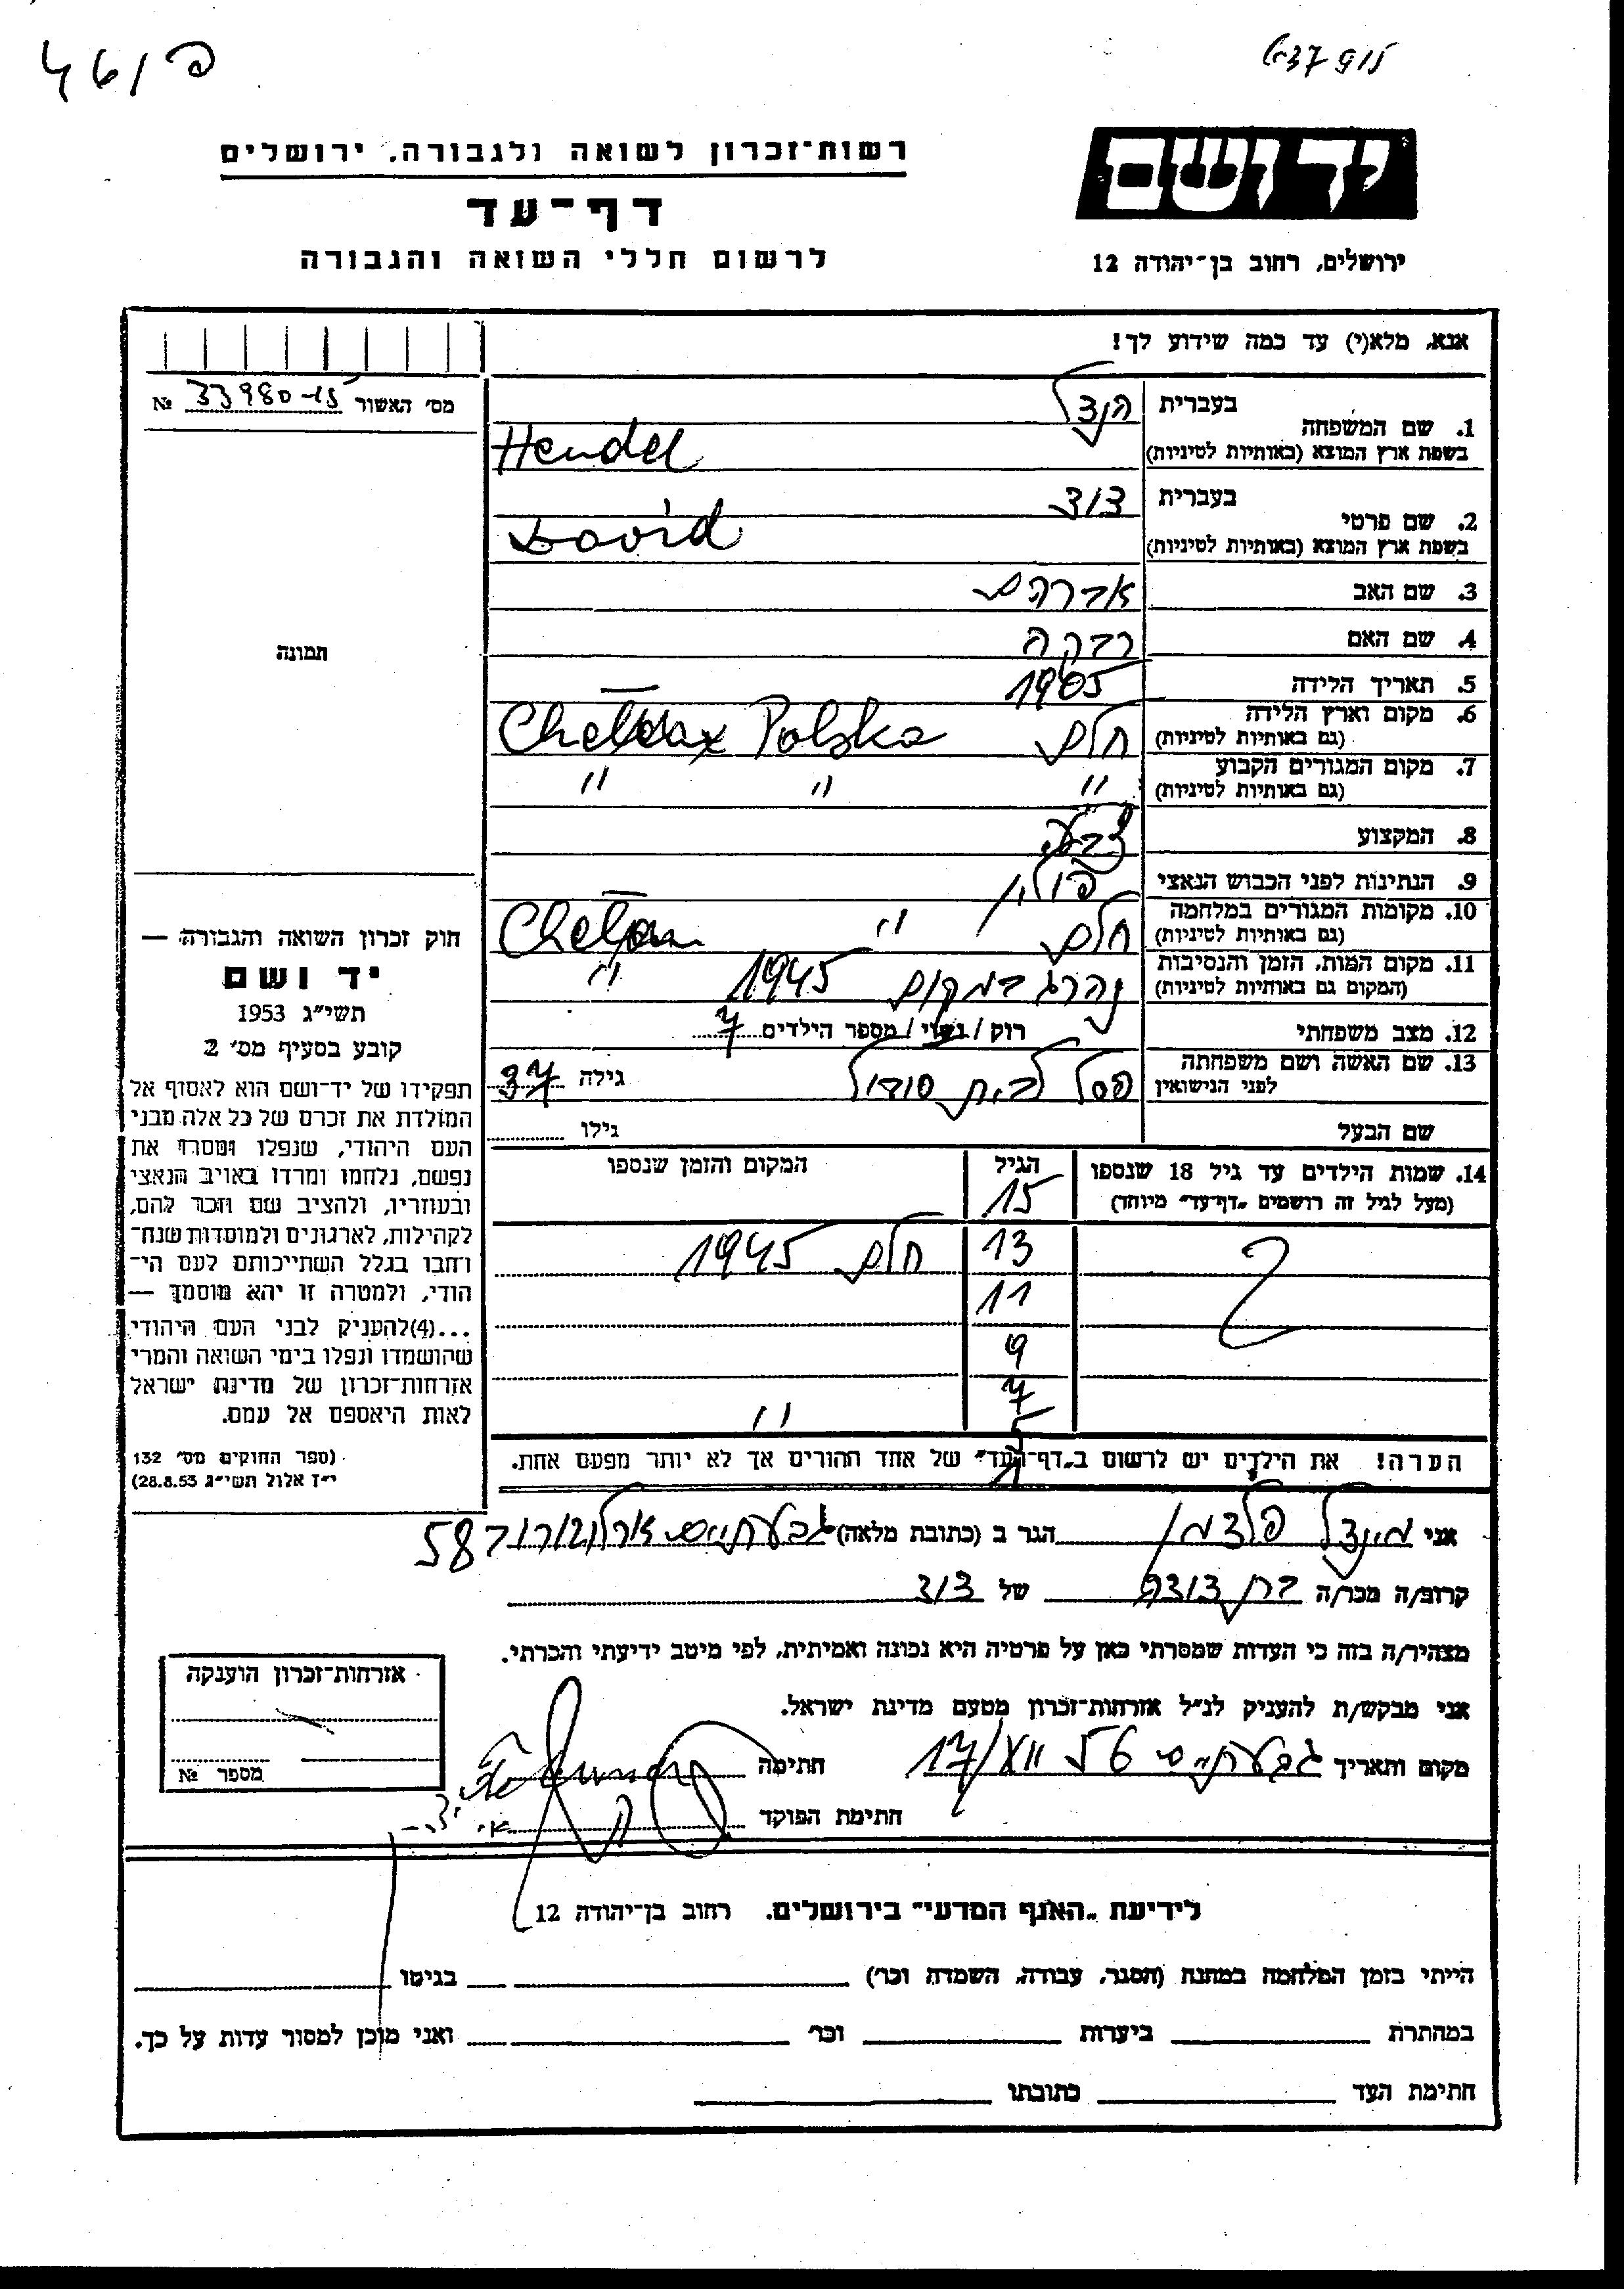 46/פ
יד ושם
רשות־זכרון לשואה ולגבורה, ירושלים
דף־עד
לרשום חללי השואה והגבורה
ירושלים, רחוב בן־יהודה 12
אנא, מלא(י) עד כמה שידוע לך!
מס׳ האשור 33980-15 №
1. שם המשפחה בעברית הנדל
בשפת ארץ המוצא (באותיות לטיניות) Hendel
2. שם פרטי בעברית דוד
בשפת ארץ המוצא (באותיות לטיניות) David
3. שם האב אברהם
4. שם האם רבקה
5. תאריך הלידה 1905
6. מקום וארץ הלידה
(גם באותיות לטיניות) חלם Polska
7. מקום המגורים הקבוע
(גם באותיות לטיניות) " " "
8. המקצוע
9. הנתינות לפני הכבוש הנאצי פולין
10. מקומות המגורים במלחמה
(גם באותיות לטיניות) חלם "
11. מקום המות, הזמן והנסיבות
(המקום גם באותיות לטיניות) נהרג במקום 1945 "
12. מצב משפחתי רוק / נשוי / מספר הילדים 7
13. שם האשה ושם משפחתה
לפני הנישואין פסל לבית גילה 37
שם הבעל גילו
תמונה
חוק זכרון השואה והגבורה —
יד ושם
תשי״ג 1953
קובע בסעיף מס׳ 2
תפקידו של יד־ושם הוא לאסוף אל
המולדת את זכרם של כל אלה מבני
העם היהודי, שנפלו ומסרו את
נפשם, נלחמו ומרדו באויב הנאצי
ובעוזריו, ולהציב שם וזכר להם,
לקהילות, לארגונים ולמוסדות שנח־
רבו בגלל השתייכותם לעם הי־
הודי, ולמטרה זו יהא מוסמך —
...(4)להעניק לבני העם היהודי
שהושמדו ונפלו בימי השואה והמרי
אזרחות־זכרון של מדינת ישראל
לאות היאספם אל עמם.
(ספר החוקים מס׳ 132
י״ז אלול תשי״ג 28.8.53)
14. שמות הילדים עד גיל 18 שנספו
(מעל לגיל זה רושמים „דף־עד״ מיוחד)
הגיל
המקום והזמן שנספו
15
13 חלם 1945
11
9
7 "
5
1
הערה! את הילדים יש לרשום ב„דף־העד״ של אחד ההורים אך לא יותר מפעם אחת.
אני פלדמן הגר ב (כתובת מלאה) גבעתיים 58
קרוב/ה מכר/ה בן דודה של דוד
מצהיר/ה בזה כי העדות שמסרתי כאן על פרטיה היא נכונה ואמיתית, לפי מיטב ידיעתי והכרתי.
אני מבקש/ת להעניק לנ״ל אזרחות־זכרון מטעם מדינת ישראל.
מקום ותאריך גבעתיים חתימה
חתימת הפוקד
אזרחות־זכרון הוענקה
מספר №
לידיעת „האגף המדעי״ בירושלים. רחוב בן־יהודה 12
הייתי בזמן המלחמה במחנה (הסגר, עבודה, השמדה וכו׳) בגיטו
במחתרת ביערות וכו׳ ואני מוכן למסור עדות על כך.
חתימת העד כתובתו